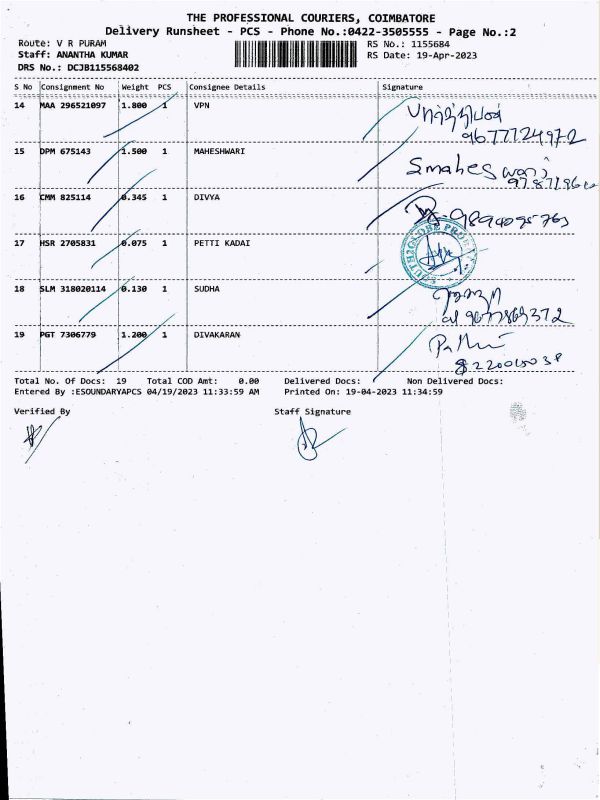 THE PROFESSIONAL COURIERS, COIMBATORE
Delivery Runsheet - PCS - Phone No.:0422-3505555 - Page No.:2
Route: V R PURAM RS No.: 1155684
Staff: ANANTHA KUMAR RS Date: 19-Apr-2023
DRS No.: DCJB115568402
S No Consignment No Weight PCS Consignee Details Signature
14 MAA 296521097 1.800 1 VPN
9677724972
15 DPM 675143 1.500 1 MAHESHWARI
16 CMM 825114 0.345 1 DIVYA
17 HSR 2705831 0.075 1 PETTI KADAI
18 SLM 318020114 0.130 1 SUDHA
19 PGT 7306779 1.200 1 DIVAKARAN
Total No. Of Docs: 19 Total COD Amt: 0.00 Delivered Docs: Non Delivered Docs:
Entered By :ESOUNDARYAPCS 04/19/2023 11:33:59 AM Printed On: 19-04-2023 11:34:59
Verified By Staff Signature